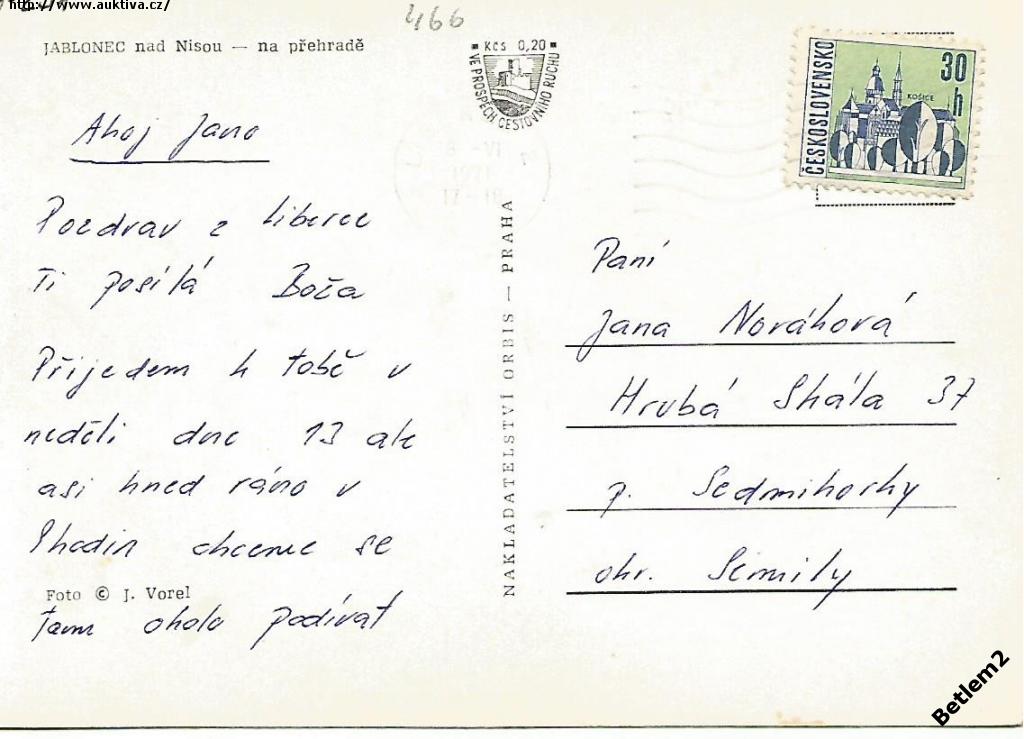 http://www.auktiva.cz/
466
JABLONEC nad Nisou — na přehradě
Kčs 0,20
VE PROSPĚCH CESTOVNÍHO RUCHU
ČESKOSLOVENSKO
30 h
KOŠICE
8 -VI
1971
17-18
Ahoj Jano
Pozdrav z Liberce
Ti posílá Boža
Přijedem k tobě v
neděli dne 13 ale
asi hned ráno v
9 hodin chceme se
Foto © J. Vorel
tam okolo podívat
NAKLADATELSTVÍ ORBIS — PRAHA
Paní
Jana Nováková
Hrubá Skála 37
p. Sedmihorky
okr. Semily
Betlem2